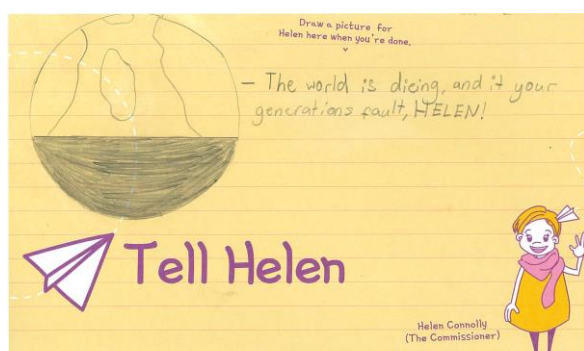 Draw a picture for
Helen here when you're done.
– The world is dieing, and it your
generations fault, HELEN!
Tell Helen
Helen Connolly
(The Commissioner)